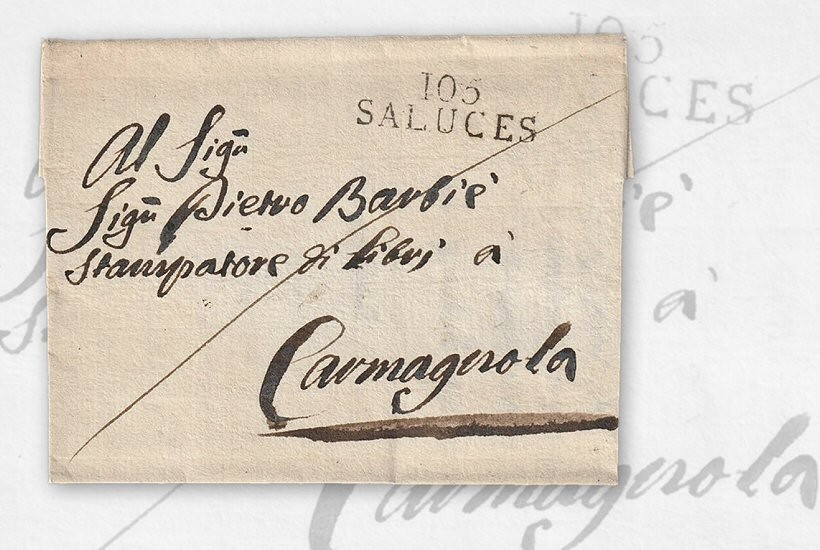 105
SALUCES
Al Sigñ
Sigñ Pietro Barbiè
stampatore di libri à
Carmagnola